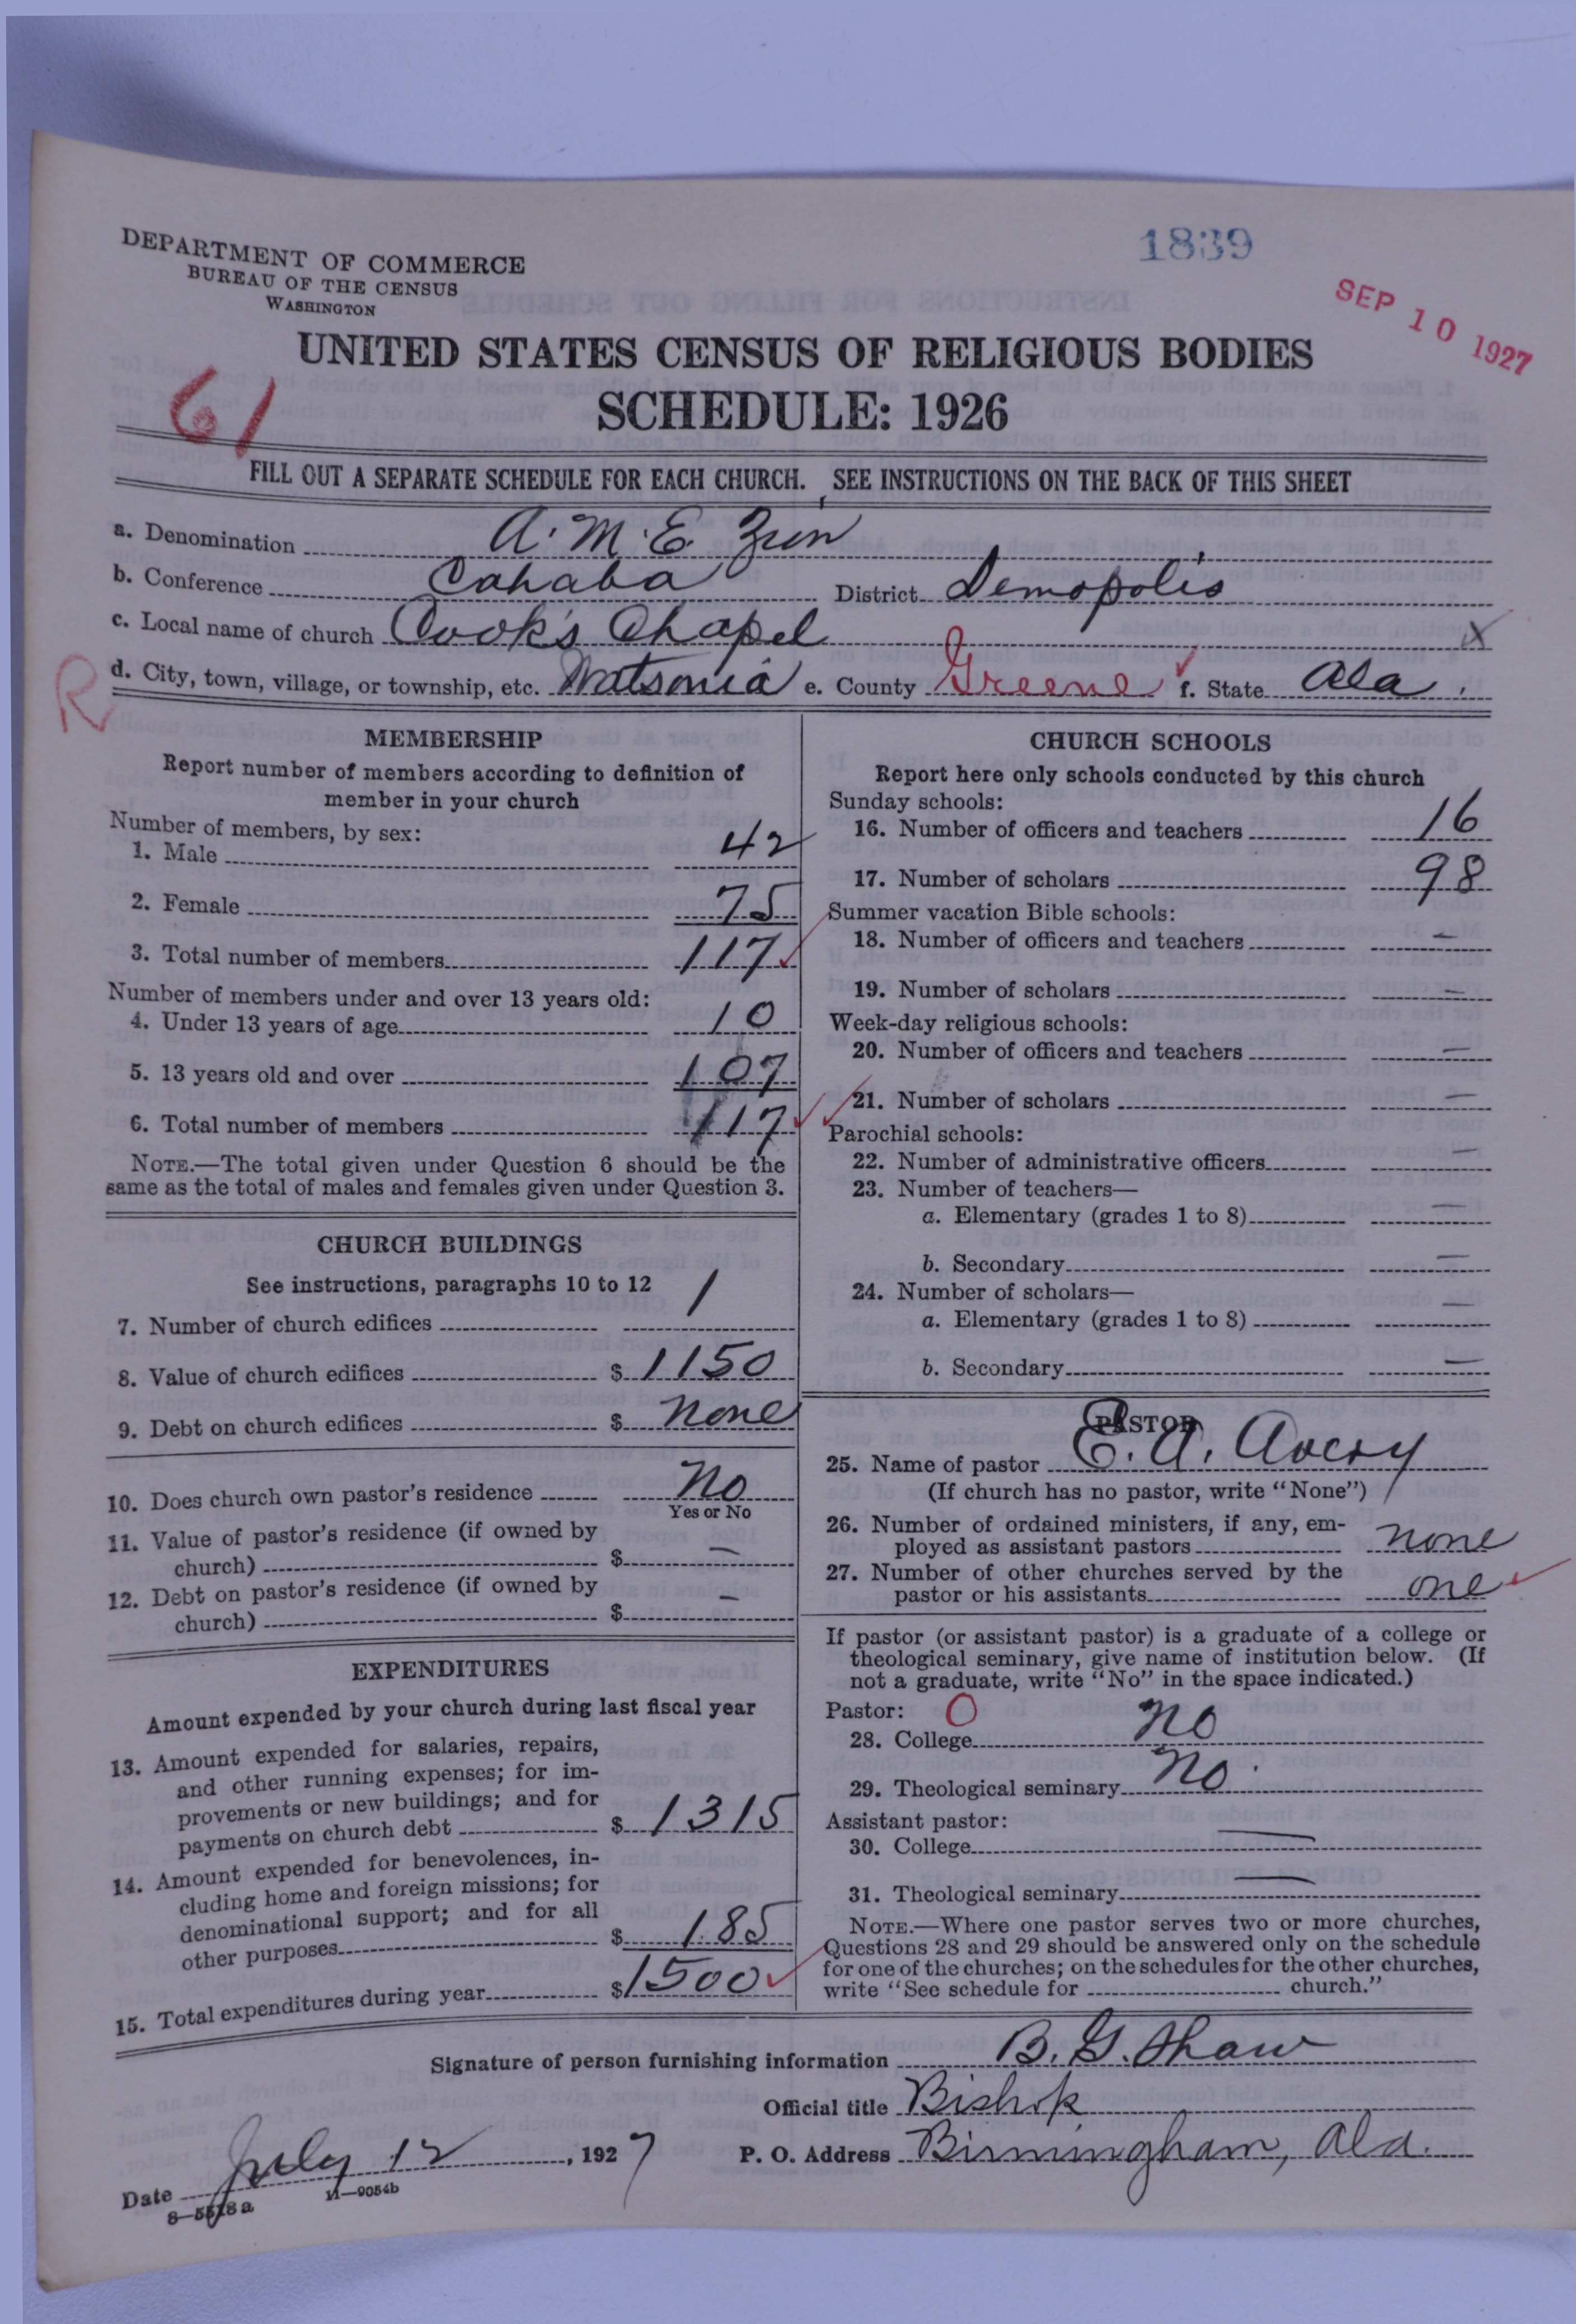 DEPARTMENT OF COMMERCE
BUREAU OF THE CENSUS
WASHINGTON
1839
SEP 10 1927
UNITED STATES CENSUS OF RELIGIOUS BODIES
SCHEDULE: 1926
61
FILL OUT A SEPARATE SCHEDULE FOR EACH CHURCH. SEE INSTRUCTIONS ON THE BACK OF THIS SHEET
a. Denomination A. M. E. Zion
b. Conference Cahaba District Demopolis
c. Local name of church Cook's Chapel X
R d. City, town, village, or township, etc. Watsonia e. County Greene f. State Ala.
MEMBERSHIP
Report number of members according to definition of
member in your church
Number of members, by sex:
1. Male 42
2. Female 75
3. Total number of members 117
Number of members under and over 13 years old:
4. Under 13 years of age 10
5. 13 years old and over 107
6. Total number of members 117
NOTE.—The total given under Question 6 should be the
same as the total of males and females given under Question 3.
CHURCH BUILDINGS
See instructions, paragraphs 10 to 12
7. Number of church edifices 1
8. Value of church edifices $ 1150
9. Debt on church edifices $ none
10. Does church own pastor's residence No
Yes or No
11. Value of pastor's residence (if owned by
church) $ —
12. Debt on pastor's residence (if owned by
church) $ —
EXPENDITURES
Amount expended by your church during last fiscal year
13. Amount expended for salaries, repairs,
and other running expenses; for im-
provements or new buildings; and for
payments on church debt $ 1315
14. Amount expended for benevolences, in-
cluding home and foreign missions; for
denominational support; and for all
other purposes $ 185
15. Total expenditures during year $ 1500
CHURCH SCHOOLS
Report here only schools conducted by this church
Sunday schools:
16. Number of officers and teachers 16
17. Number of scholars 98
Summer vacation Bible schools:
18. Number of officers and teachers —
19. Number of scholars —
Week-day religious schools:
20. Number of officers and teachers —
21. Number of scholars —
Parochial schools:
22. Number of administrative officers —
23. Number of teachers—
a. Elementary (grades 1 to 8) —
b. Secondary —
24. Number of scholars—
a. Elementary (grades 1 to 8) —
b. Secondary —
PASTOR
25. Name of pastor E. A. Avery
(If church has no pastor, write "None")
26. Number of ordained ministers, if any, em-
ployed as assistant pastors none
27. Number of other churches served by the
pastor or his assistants one
If pastor (or assistant pastor) is a graduate of a college or
theological seminary, give name of institution below. (If
not a graduate, write "No" in the space indicated.)
Pastor: O
28. College No
29. Theological seminary No
Assistant pastor:
30. College —
31. Theological seminary —
NOTE.—Where one pastor serves two or more churches,
Questions 28 and 29 should be answered only on the schedule
for one of the churches; on the schedules for the other churches,
write "See schedule for church."
Signature of person furnishing information B. G. Shaw
Official title Bishop
Date July 12, 1927 P. O. Address Birmingham, Ala.
8—5518a 11—9054b